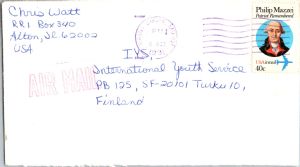 Chris Watt
RR1 Box 340
Alton, IL 62002
USA
AIR MAIL
IYS,
International Youth Service
PB 125, SF-20101 Turku 10,
Finland
Philip Mazzei
Patriot Remembered
USAirmail
40c